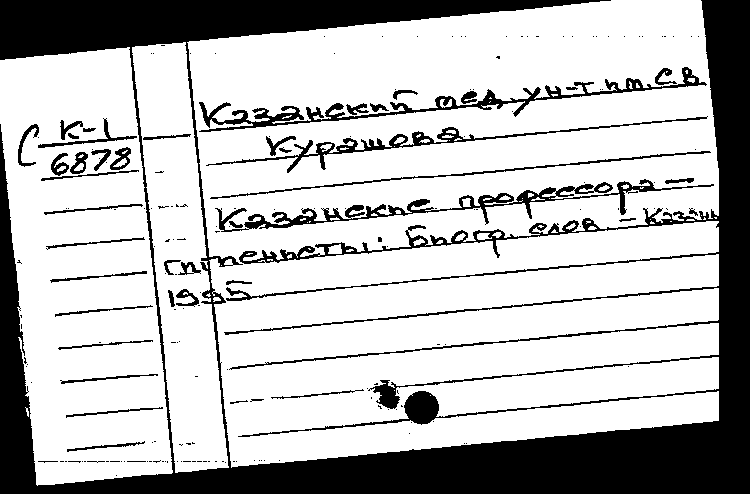 Казанский мед. ун-т им. С.В.
Курашова.
С К-1
6878
Казанские профессора —
гигиенисты: Биогр. слов. – Казань,
1995